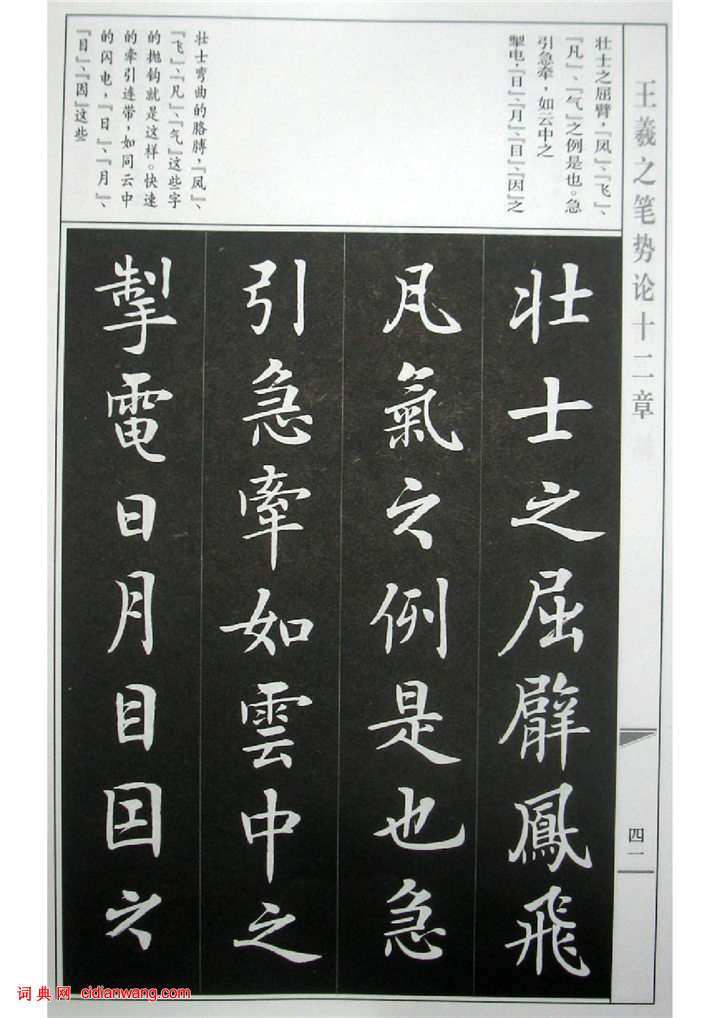 王羲之笔势论十二章
壮士之屈臂，『凤』、『飞』、
『凡』、『气』之例是也。急
引急牵，如云中之
掣电，『日』、『月』、『目』、『因』之
壮士弯曲的胳膊，『凤』、
『飞』、『凡』、『气』这些字
的抛钩就是这样。快速
的牵引连带，如同云中
的闪电，『日』、『月』、
『目』、『因』这些
壮士之屈臂鳳飛
凡氣之例是也急
引急牽如雲中之
掣電日月目因之
四一
词典网 cidianwang.com